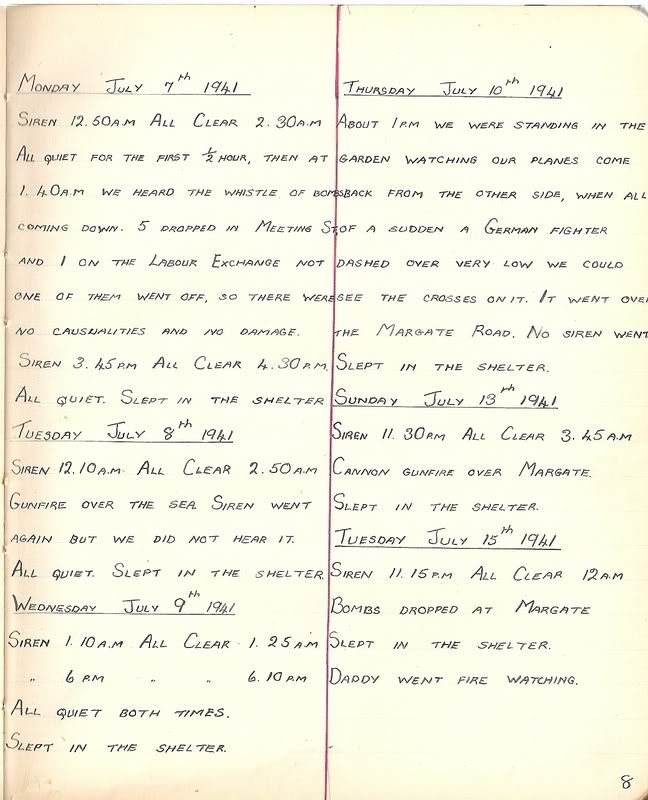 Monday July 7th 1941
Siren 12.50a.m All Clear 2.30a.m
All quiet for the first ½ hour, then at
1.40a.m we heard the whistle of bombs
coming down. 5 dropped in Meeting St,
and 1 on the Labour Exchange not
one of them went off, so there were
no causualities and no damage.
Siren 3.45pm All Clear 4.30p.m.
All quiet. Slept in the shelter
Tuesday July 8th 1941
Siren 12.10a.m. All Clear 2.50a.m
Gunfire over the sea. Siren went
again but we did not hear it.
All quiet. Slept in the shelter
Wednesday July 9th 1941
Siren 1.10a.m All Clear 1.25a.m
" 6pm " " 6.10pm
All quiet both times.
Slept in the shelter.
Thursday July 10th 1941
About 1pm we were standing in the
garden watching our planes come
back from the other side, when all
of a sudden a German fighter
dashed over very low we could
see the crosses on it. It went over
the Margate Road. No siren went
Slept in the shelter.
Sunday July 13th 1941
Siren 11.30pm All Clear 3.45a.m
Cannon gunfire over Margate.
Slept in the shelter.
Tuesday July 15th 1941
Siren 11.15p.m All Clear 12a.m
Bombs dropped at Margate
Slept in the shelter.
Daddy went fire watching.
8